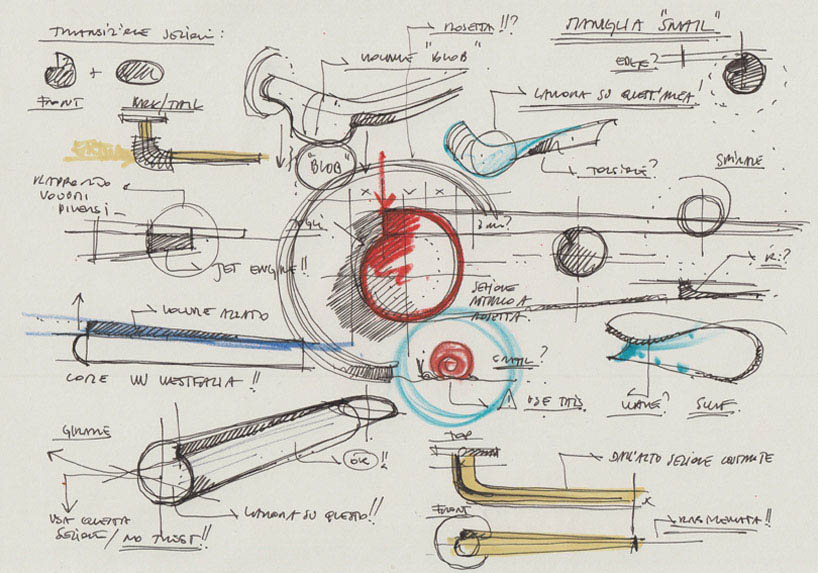 TRANSIZIONE SEZIONI:
ROSETTA!!?
MANIGLIA "SNAIL"
VOLUME "BLOB"
EDGE?
+
FRONT
BACK/TAIL
LAVORA SU QUEST'AREA!
"BLOB"
TORSIONE?
SPIRALE
RAPPORTO
VOLUMI
DIVERSI
x
x
JET ENGINE!!
R:?
SEZIONE
ATTACCO A
ROSETTA.
VOLUME ALZATO
SNAIL?
COME UN WESTFALIA!!
! USE THIS.
WAVE?
SURF
GIRARE
OK!!
TOP
DALL'ALTO SEZIONE COSTANTE
x
FRONT
USA QUESTA
SEZIONE/NO TWIST!!
LAVORA SU QUESTO!!
RASTREMATA!!